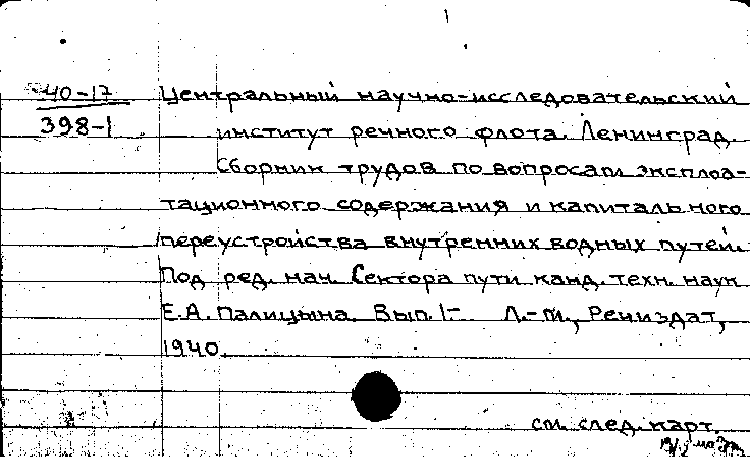 40-17
398-1
Центральный научно-исследовательский
институт речного флота. Ленинград.
Сборник трудов по вопросам эксплоа-
тационного содержания и капитального
переустройства внутренних водных путей.
Под ред. нач. Сектора пути канд. техн. наук
Е.А. Палицына. Вып. 1- Л.-М., Речиздат,
1940.
см. след. карт.